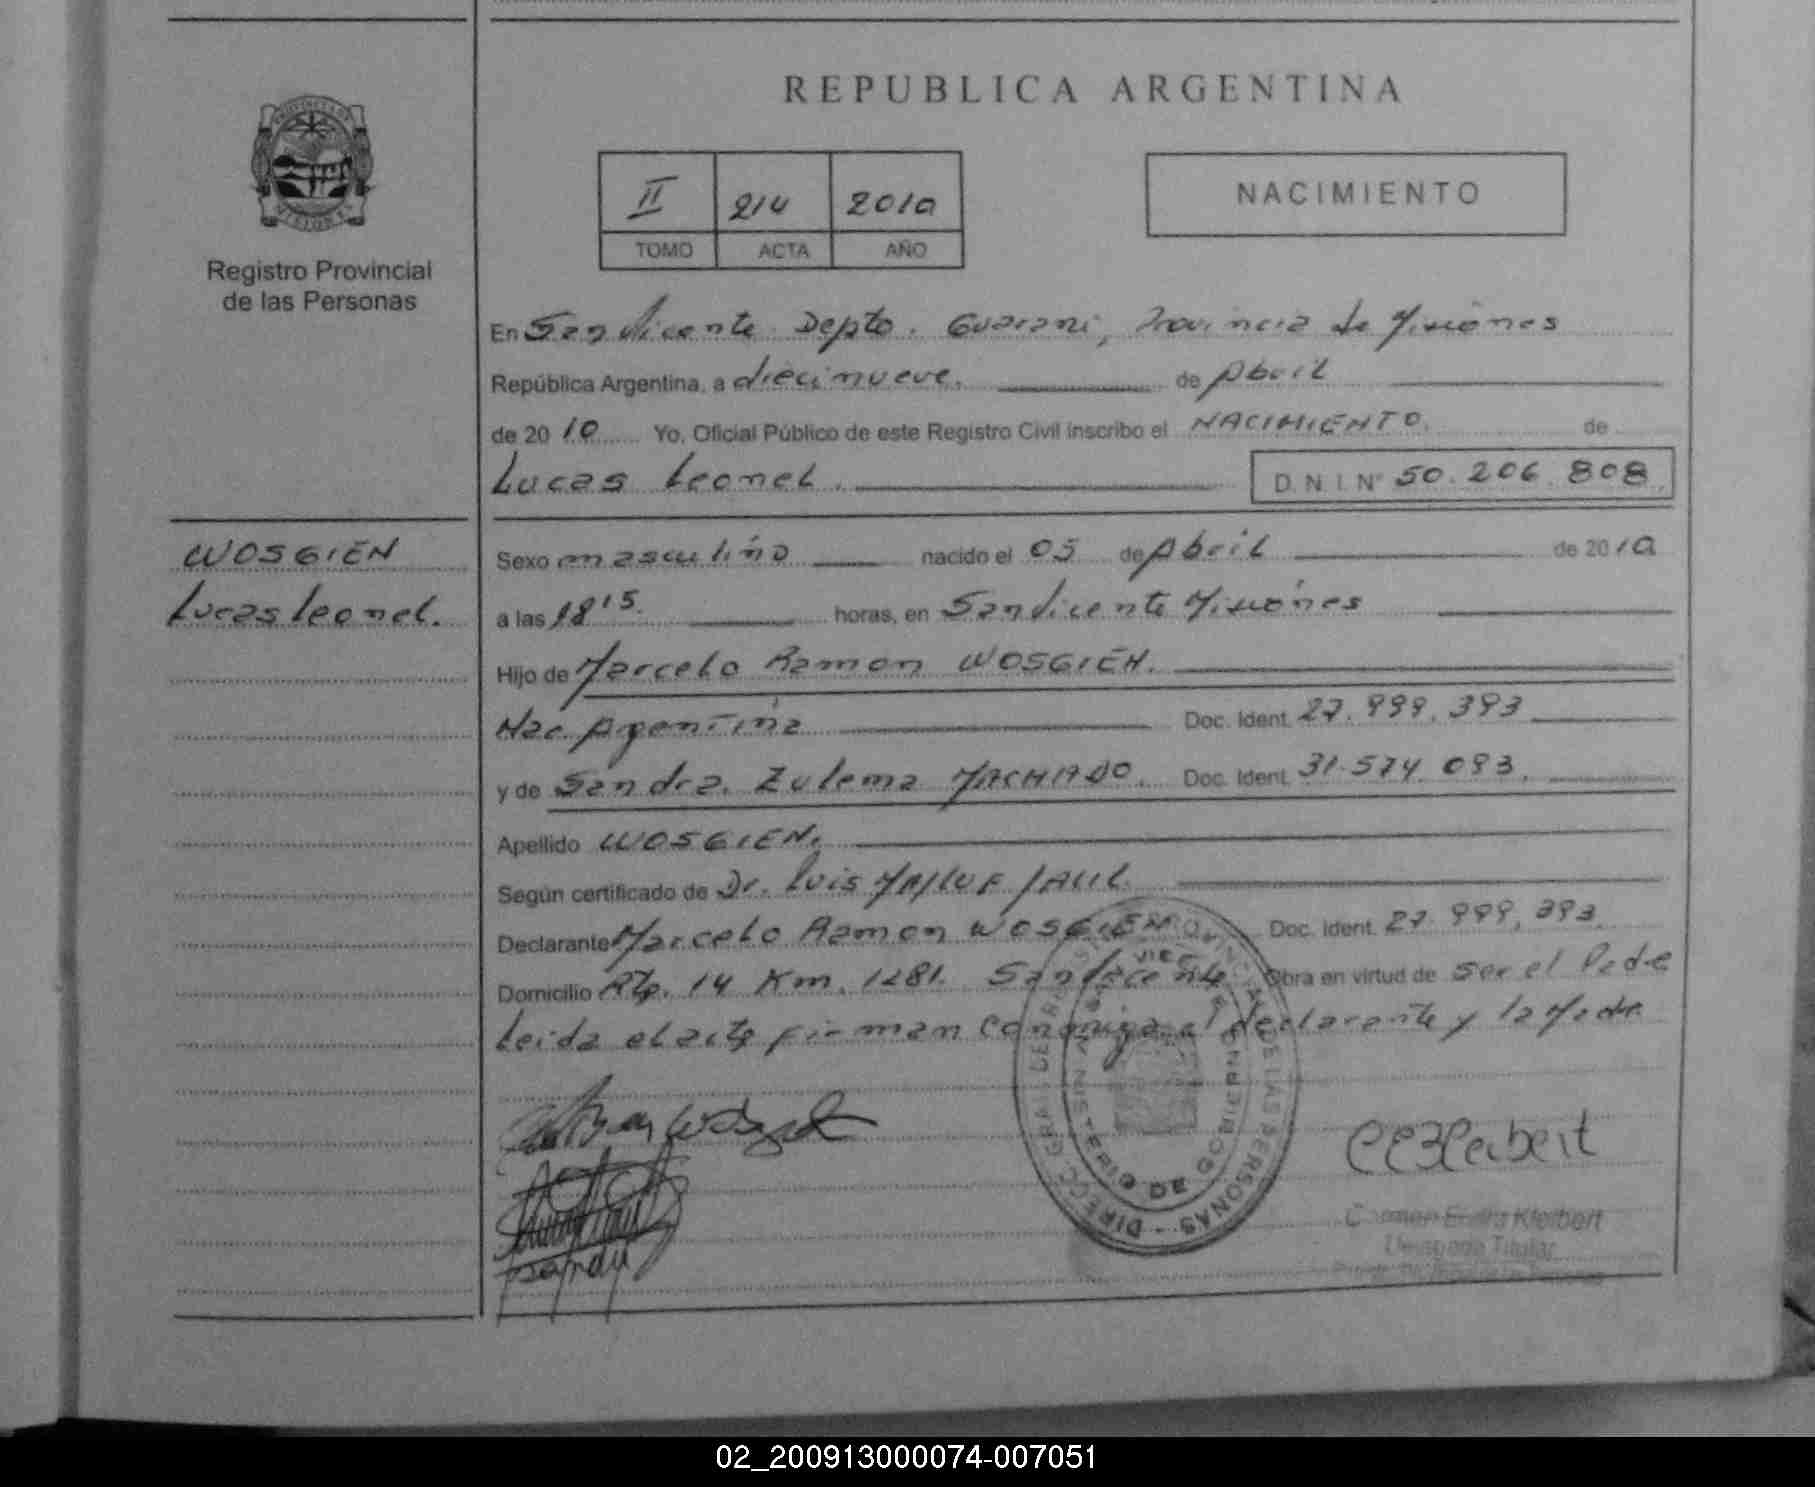 REPUBLICA ARGENTINA
II 214 2010
TOMO ACTA AÑO
NACIMIENTO
Registro Provincial
de las Personas
En San Vicente Depto. Guarani, Provincia de Misiones
República Argentina, a diecinueve. de Abril
de 20 10 Yo, Oficial Público de este Registro Civil inscribo el NACIMIENTO. de
Lucas Leonel. D. N. I. Nº 50.206.808
WOSGIEN
Lucas Leonel.
Sexo masculino nacido el 05 de Abril de 2010
a las 18 15. horas, en San Vicente Misiones
Hijo de Marcelo Ramon WOSGIEN.
Nac Argentina Doc. Ident. 27.999.393
y de Sandra Zulema MACHADO. Doc. Ident. 31.574.093.
Apellido WOSGIEN.
Según certificado de Dr. Luis
Declarante Marcelo Ramon WOSGIEN Doc. Ident. 27.999.393.
Domicilio Rta. 14 Km. 1281. San Vicente Obra en virtud de ser el Padre
Leida el acta firman conmigo el declarante y la Madre
DIRECC. GRAL. DE REG. PROVINCIAL DE LAS PERSONAS
MINISTERIO DE GOBIERNO
Kleibert
Titular
02_200913000074-007051